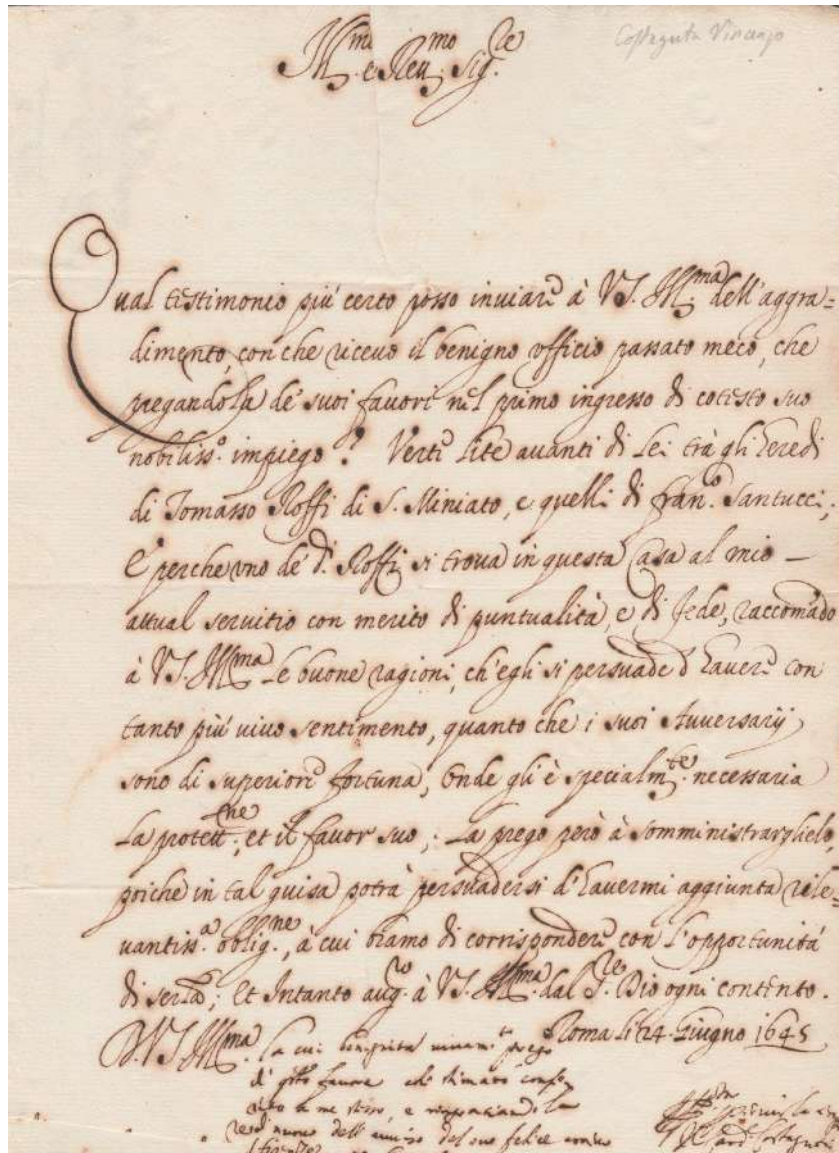 Costaguta Vincenzo
Ill.mo e Reu.mo Sig.re
Qual testimonio più certo posso inuiare à V.S. Ill.ma dell'aggra=
dimento, con che riceuo il benigno officio passato meco, che
pregandola de' suoi fauori nel primo ingresso di cotesto suo
nobiliss.o impiego? Verte lite auanti di Lei trà gli heredi
di Tomasso Roffi di S. Miniato, e quelli di Fran.o Santucci;
E perche uno de' d.i Roffi si troua in questa Casa al mio
attual seruitio con merito di puntualità, e di fede, raccomãdo
à V.S. Ill.ma le buone ragioni, ch'egli si persuade d'hauere con
tanto più uiuo sentimento, quanto che i suoi Auuersarij
sono di superiore fortuna, Onde gli è specialm.te necessaria
La protett.ne, et il fauor suo; La prego però à somministrarglielo,
poiche in tal guisa potrà persuadersi d'hauermi aggiunta rile=
uantiss.a oblig.ne, à cui bramo di corrispondere con l'opportunità
di seru.la; Et Intanto aug.o à V.S. Ill.ma dal S.re Dio ogni contento.
Roma li 24 Giugno 1645
D. V.S. Ill.ma la cui benignità uiuam.te prego
di q.sto fauore che stimarò confe
rito a me stesso, e ringratiandola
di nuouo dell'auuiso del suo felice arriuo
Il Card. Costaguti